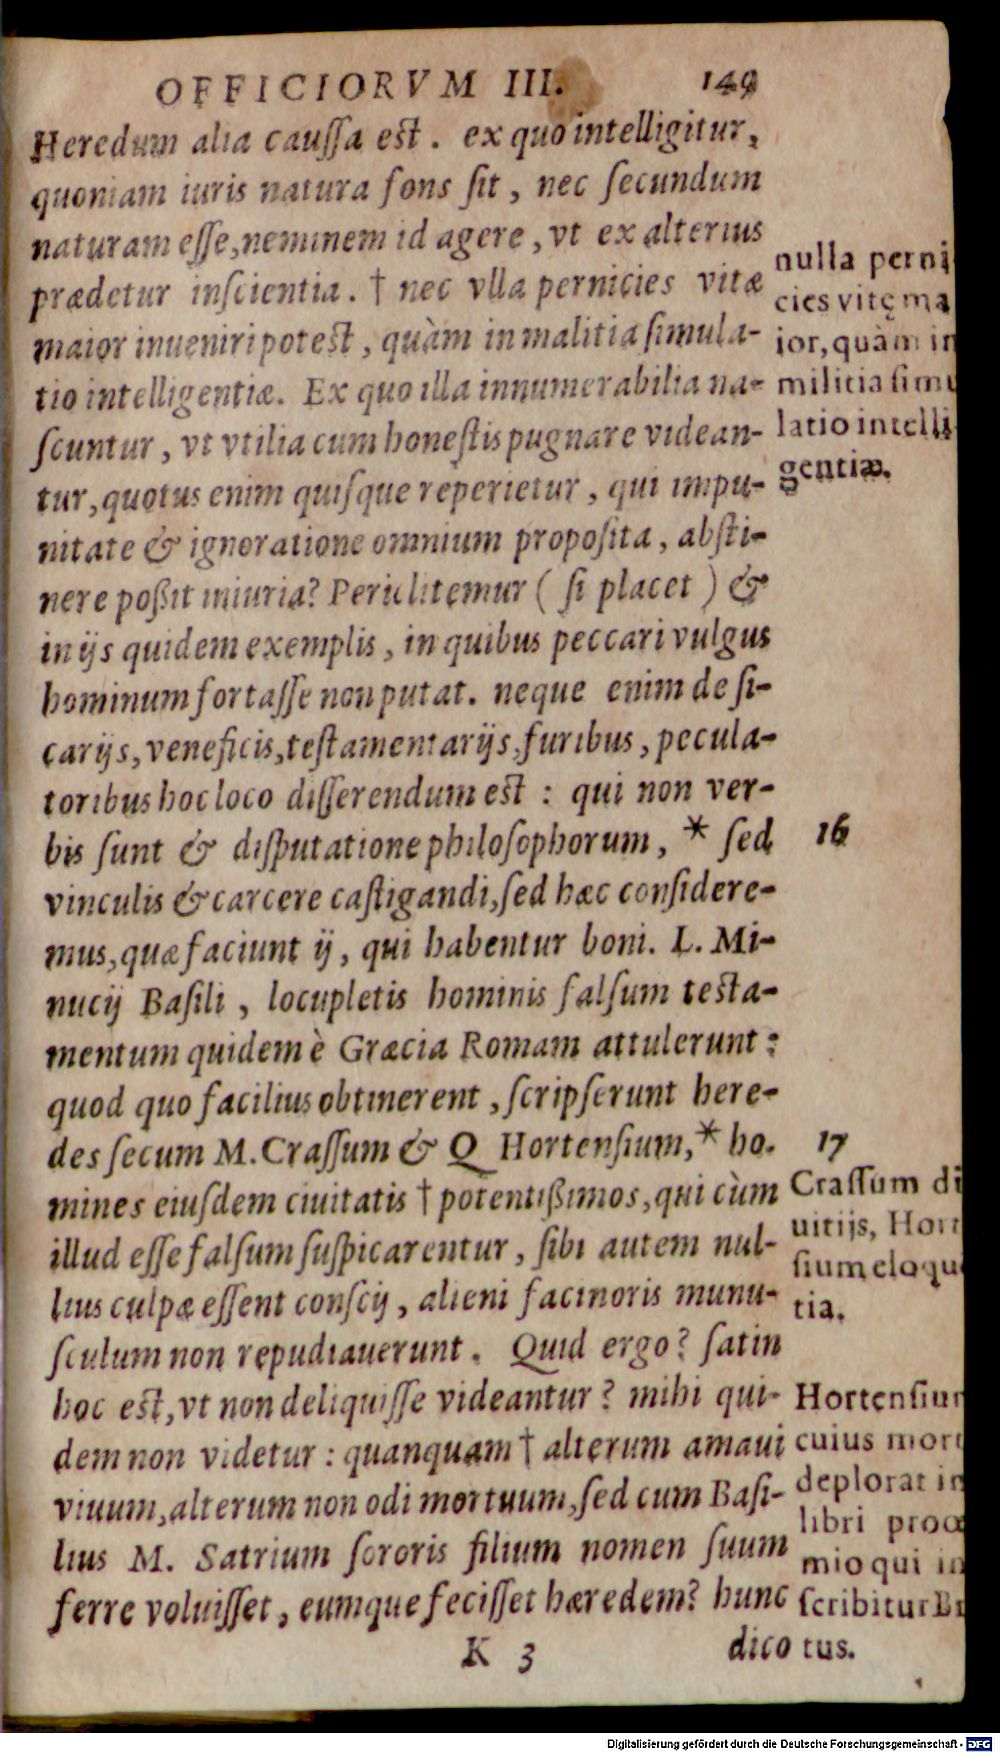 OFFICIORVM III. 149
Heredum alia caussa est. ex quo intelligitur,
quoniam iuris natura fons sit, nec secundum
naturam esse, neminem id agere, vt ex alterius
prædetur inscientia. † nec vlla pernicies vitæ
maior inueniri potest, quàm in malitia simula-
tio intelligentiæ. Ex quo illa innumerabilia na-
scuntur, vt vtilia cum honestis pugnare videan-
tur, quotus enim quisque reperietur, qui impu-
nitate & ignoratione omnium proposita, absti-
nere poßit iniuria? Periclitemur (si placet) &
in ijs quidem exemplis, in quibus peccari vulgus
hominum fortasse non putat. neque enim de si-
carijs, veneficis, testamentarijs, furibus, pecula-
toribus hoc loco disserendum est: qui non ver-
bis sunt & disputatione philosophorum, * sed
vinculis & carcere castigandi, sed hæc considere-
mus, quæ faciunt ij, qui habentur boni. L. Mi-
nucij Basili, locupletis hominis falsum testa-
mentum quidem è Græcia Romam attulerunt:
quod quo facilius obtinerent, scripserunt here-
des secum M. Crassum & Q Hortensium, * ho.
mines eiusdem ciuitatis † potentißimos, qui cùm
illud esse falsum suspicarentur, sibi autem nul-
lius culpæ essent conscij, alieni facinoris munu-
sculum non repudiauerunt. Quid ergo? satin
hoc est, vt non deliquisse videantur? mihi qui-
dem non videtur: quanquam † alterum amaui
viuum, alterum non odi mortuum, sed cum Basi-
lius M. Satrium sororis filium nomen suum
ferre voluisset, eumque fecisset hæredem? hunc
K 3 dico
nulla perni
cies vitę ma
ior, quàm in
militia simu
latio intelli
gentiæ.
16
17
Crassum di
uitijs, Hort
sium eloqu
tia.
Hortensiu
cuius mor
deplorat in
libri proœ
mio qui in
scribitur Br
tus.
Digitalisierung gefördert durch die Deutsche Forschungsgemeinschaft - DFG